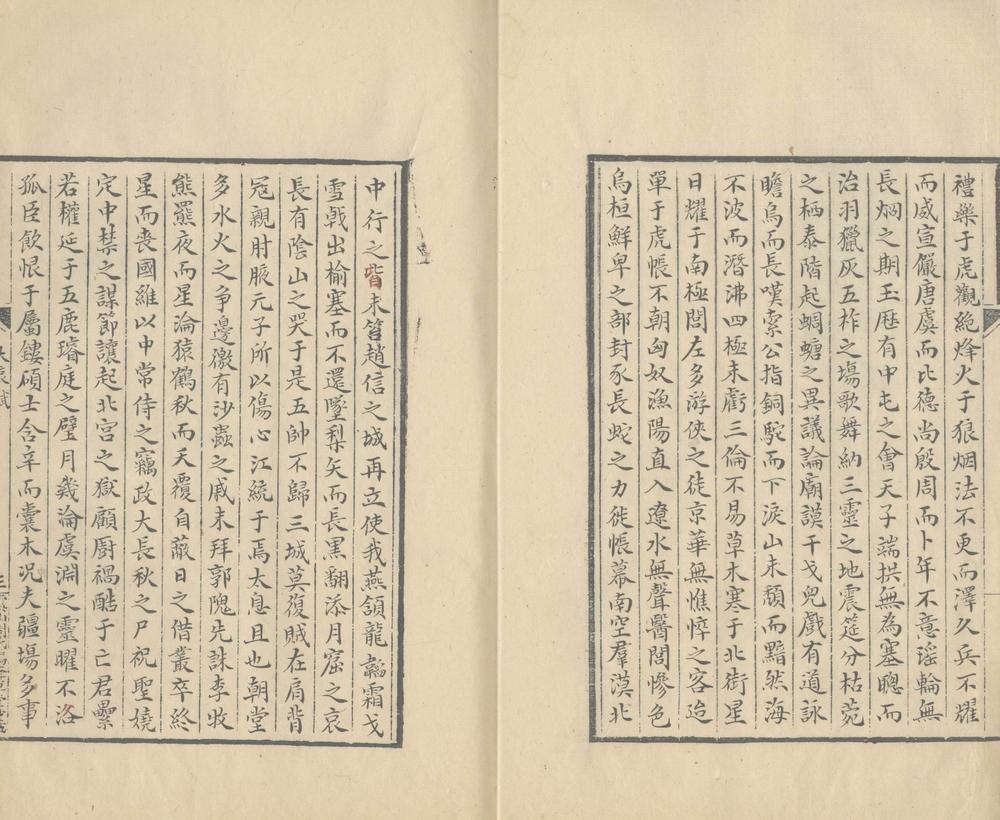 禮樂于虎觀絶烽火于狼烟法不更而澤久兵不耀
而威宣儼唐虞而比德尚殷周而卜年不意謡輪無
長烱之期玉厯有中屯之會天子端拱無為塞聰而
治羽獵灰五祚之塲歌舞納三靈之地震筵分枯菀
之栖泰階起蜩螗之異議論廟謨干戈兒戲有道詠
瞻烏而長嘆索公指銅駝而下淚山未頽而黯然海
不波而潛沸四極未虧三倫不易草木寒于北街星
日耀于南極閭左多游俠之徒京華無憔悴之客迨
單于虎帳不朝匈奴漁陽直入遼水無聲醫閭慘色
烏桓鮮卑之部封豕長蛇之力徙帳幕南空羣漠北
中行之背未笞趙信之城再立使我燕頷龍韜霜戈
雪戟出榆塞而不還墜梨矢而長黑翻添月窟之哀
長有陰山之哭于是五帥不歸三城莫復賊在肩背
冦親肘腋元子所以傷心江統于焉太息且也朝堂
多水火之争邊徼有沙蟲之戚未拜郭隗先誅李牧
熊羆夜而星淪猿鶴秋而天覆自蔽日之借叢卒終
星而喪國維以中常侍之竊政大長秋之尸祝聖嬈
定中禁之謀節讓起北宫之獄顧厨禍酷于亡君纍
若權延于五鹿璿庭之璧月幾淪虞淵之靈曜不洛
孤臣飲恨于屬鏤碩士含辛而囊木况夫疆塲多事
大哀賦